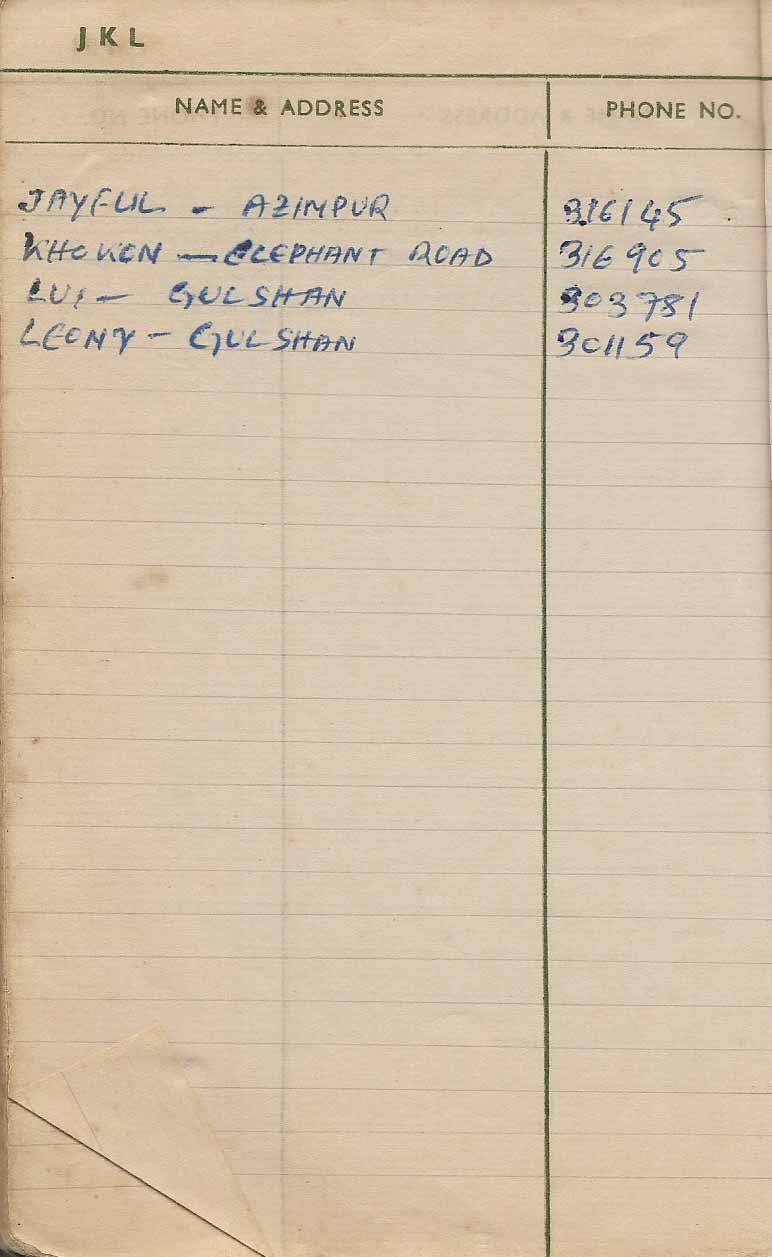 J K L
NAME & ADDRESS PHONE NO.
JAYFUL - AZIMPUR 316145
KHOKON — ELEPHANT ROAD 316905
LUI - GULSHAN 303781
LEONY - GULSHAN 301159